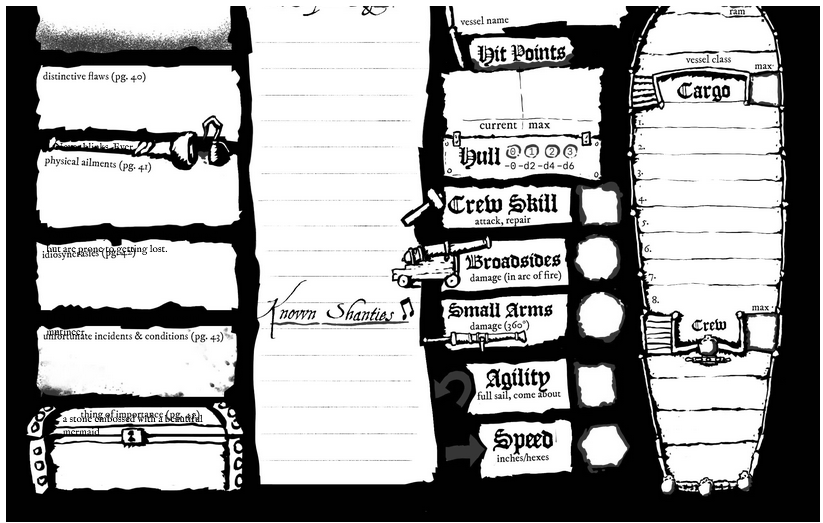 distinctive flaws (pg. 40)
blinks. Ever
physical ailments (pg. 41)
but are prone to getting lost.
idiosyncrasies (pg. 42)
mutineer
unfortunate incidents & conditions (pg. 43)
thing of importance (pg. 42)
a stone embossed with a beautiful
mermaid
Known Shanties
vessel name
Hit Points
current max
Hull 0 1 2 3
-0 -d2 -d4 -d6
Crew Skill
attack, repair
Broadsides
damage (in arc of fire)
Small Arms
damage (360°)
Agility
full sail, come about
Speed
inches/hexes
ram
vessel class
max
Cargo
1.
2.
3.
4.
5.
6.
7.
8.
max
Crew